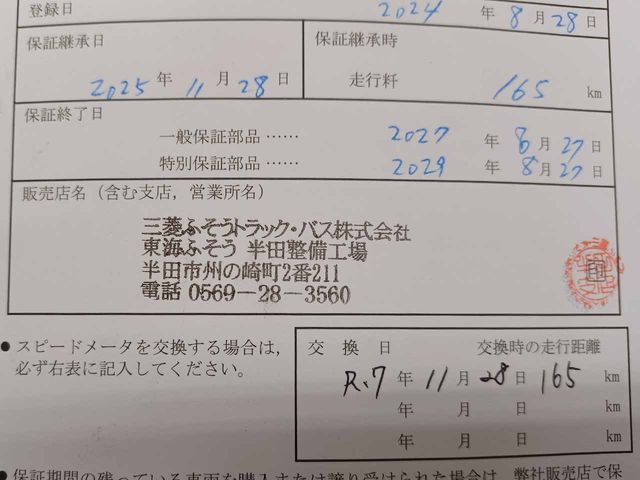 登録日 2024 年 8 月 28 日
保証継承日
2025 年 11 月 28 日
保証継承時
走行粁 165 km
保証終了日
一般保証部品 …… 2027 年 8 月 27 日
特別保証部品 …… 2029 年 8 月 27 日
販売店名（含む支店，営業所名）
三菱ふそうトラック・バス株式会社
東海ふそう 半田整備工場
半田市州の崎町2番211
電話 0569-28-3560
印
● スピードメータを交換する場合は，
必ず右表に記入してください。
交 換 日 交換時の走行距離
R.7 年 11 月 28 日 165 km
年 月 日 km
年 月 日 km
● 保証期間の残っている車両を購入または譲り受けられた場合は，弊社販売店で保